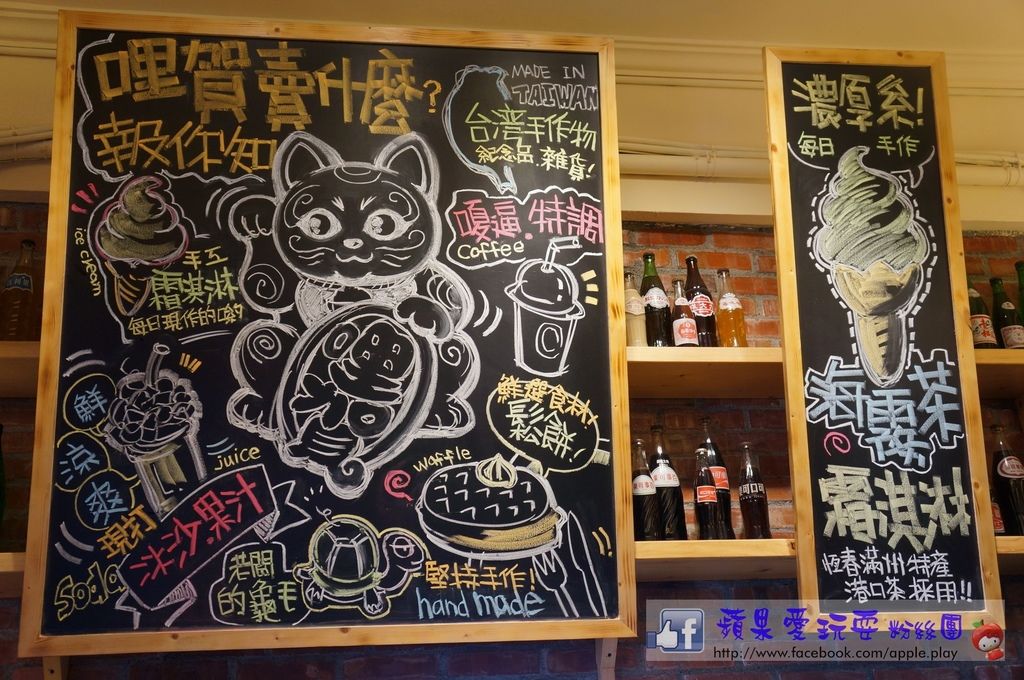 哩賀賣什麼?
報你知
MADE IN
TAIWAN
台灣手作物
紀念品.雜貨!
嘎逼.特調
Coffee
ice cream
手工
霜淇淋
每日現作的喲
鮮
涼
爽
juice
SODA
鮮選食材!
鬆餅!
waffle
若闆
的龜毛
堅持手作!
hand made
濃厚系!
每日 手作
海霧茶
霜淇淋
恆春滿州特產
港口茶採用!!
蘋果愛玩耍粉絲團
http://www.facebook.com/apple.play